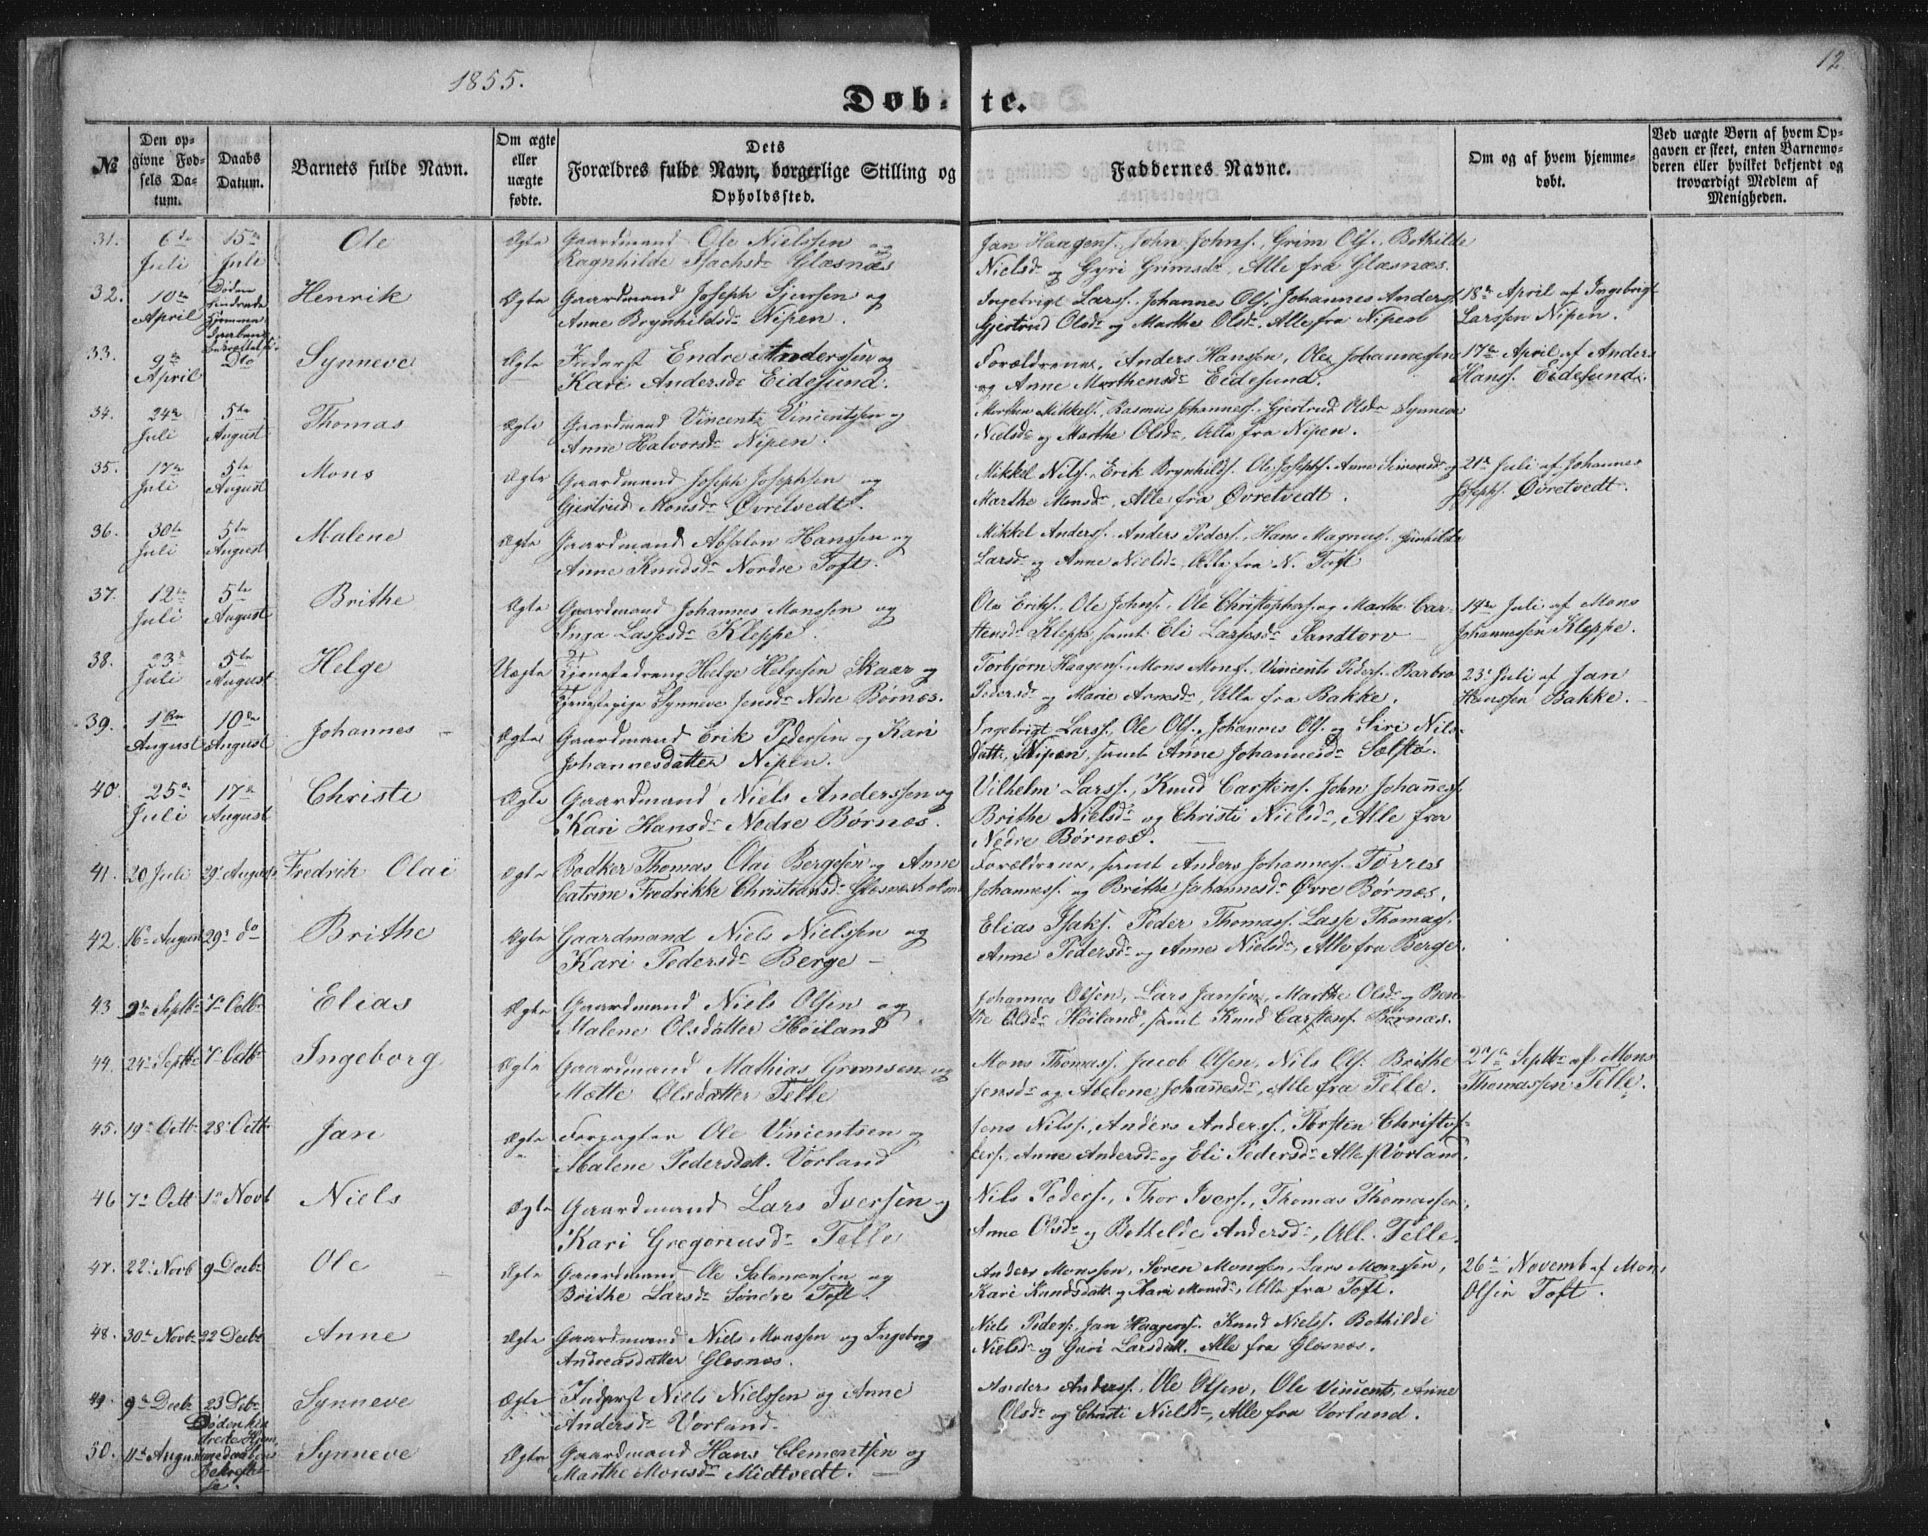 1855.
12
Døbte.
№
Den opgivne Fødsels Datum.
Daabs Datum.
Barnets fulde Navn.
Om ægte eller uægte fødte.
Dets Forældres fulde Navn, borgerlige Stilling og Opholdssted.
Faddernes Navne.
Om og af hvem hjemmedøbt.
Ved uægte Børn af hvem Opgaven er skeet, enten Barnemoderen eller hvilket bekjendt og troværdigt Medlem af Menigheden.
31. 6te Juli 15de Juli Ole Ægte Gaardmand Ole Nielssen og
Ragnhilde Isachsdr Glæsnæs
Jan Haagens. John Johns. Grim Ols. Bothilde
Nielsdr og Gyri Grimsdr, Alle fra Glæsnæs.
32. 10de April Døden hindrede Hjemmedaabens Bekræftelse Henrik Ægte Gaardmand Joseph Sjursen og
Anne Brynhildsdr Nipen.
Ingebrigt Larss. Johannes Ols. Johannes Anderss.
Gjertrud Olsdr og Marthe Olsdr, Alle fra Nipen
18de April af Ingebrigt
Larssen Nipen.
33. 9de April Dto Synneve Ægte Inderst Endre Anderssen og
Kari Andersdr Eidesund.
Forældrene, Anders Hanssen, Ole Johannessen
og Anne Marthensdr Eidesund.
17de April af Anders
Hanss. Eidesund.
34. 24de Juli 5te August Thomas Ægte Gaardmand Vincents Vincentssen og
Anne Halvorsdr Nipen.
Morthen Mikkels. Rasmus Johannes. Gjertrud Olsdr Synneve
Nielsdr og Marthe Olsdr, Alle fra Nipen.
35. 17de Juli 5te August Mons Ægte Gaardmand Joseph Josephsen og
Gjertrud Monsdr Øvretvedt.
Mikkel Nils. Erik Brynhilds. Ole Josephs. Anne Simonsdr og
Marthe Monsdr, Alle fra Øvretvedt.
21de Juli af Johannes
Josephs. Øvretvedt.
36. 30te Juli 5te August Malene Ægte Gaardmand Absalon Hanssen og
Anne Knudsdr Nordre Toft.
Mikkel Anders. Anders Peders. Hans Magnus. Gunhilde
Larsdr og Anne Nielsdr, Alle fra N. Toft
37. 12te Juli 5te August Brithe Ægte Gaardmand Johannes Monssen og
Inga Lassesdr Kleppe.
Ole Eriks. Ole Johns. Ole Christophers. og Marthe Carstensdr
Kleppe, samt Eli Larsesdr Sandtorv
14de Juli af Mons
Johannessen Kleppe.
38. 23de Juli 5te August Helge Uægte Tjenestedreng Helge Helgesen Skaar og
Tjenestepige Synneve Jensdr Nedre Børnæs.
Torbjørn Haagens. Mons Mons. Vincents Peders. Barbro
Pedersdr og Marie Arnesdr, Alle fra Bakke.
23de Juli af Jan
Hanssen Bakke.
39. 1ste August 10de August Johannes Ægte Gaardmand Erik Pedersen og Kari
Johannesdatter Nipen.
Ingebrigt Larss. Ole Ols. Johannes Ols. og Siri Nilsdatt.
Nipen, samt Anne Johannesdr Sælstø.
40. 25de Juli 17de August Christi Ægte Gaardmand Niels Anderssen og
Kari Hansdr Nedre Børnæs.
Vilhelm Larss. Knud Carstens. John Johannes.
Brithe Nielsdr og Christi Nielsdr, Alle fra
Nedre Børnæs.
41. 20 Juli 29de August Fredrik Olai Ægte Bødker Thomas Olai Bergesen og Anne
Catrine Fredrikke Christiansdr Glæsnæsholm
Forældrene, samt Anders Johannes. Torres
Johanness. og Brithe Johannesdr Øvre Børnæs.
42. 16de August 29de do Brithe Ægte Gaardmand Niels Nielssen og
Kari Pedersdr Berge
Elias Isaks. Peder Thomass. Lasse Thomas.
Anne Pedersdr og Anne Nielsdr, Alle fra Berge.
43 9de Septbr 7de Octbr Elias Ægte Gaardmand Niels Olsen og
Malene Olsdatter Høiland
Johannes Olsen, Lars Jansen, Marthe Olsdr og Berthe
Olsdr Høiland, samt Knud Carstens. Børnæs.
44. 24de Septbr 7de Octbr Ingeborg Ægte Gaardmand Mathias Grimsen og
Mette Olsdatter Telle
Mons Thomass. Jacob Olsen, Nils Ols. Brithe
Jensdr og Abelone Johannesdr, Alle fra Telle.
27de Septbr af Mons
Thomassen Telle.
45. 19de Octb 28de Octb Jan Ægte Forpagter Ole Vincentsen og
Malene Pedersdatt. Vorland
Jens Nilss. Anders Anders. Torsten Christoffers.
Anne Andersdr og Eli Pedersdr Alle f. Vorland.
46 7de Octb 1ste Novb Niels Ægte Gaardmand Lars Iversen og
Kari Gregoriusdr Telle
Nils Peders. Thor Ivers. Thomas Thomassen,
Anne Olsdr og Bothilde Andersdr, All. Telle.
47. 22de Novb 9de Decbr Ole Ægte Gaardmand Ole Salamonsen og
Brithe Larsdr Søndre Toft.
Anders Monssen, Søren Monssen, Lars Monssen,
Kari Knudsdatt. og Kari Monsdr, Alle fra Toft.
26de Novemb af Mons
Olsen Toft.
48. 30te Novbr 22 Decbr Anne Ægte Gaardmand Niels Monssen og Ingeborg
Andreasdatter Glesnæs.
Niels Peders. Jan Haagens. Knud Niels. Bothilde
Nielsdr og Guri Larsdatt. Alle fra Glesnæs.
49. 9de Decbr 23 Decbr Synneve Ægte Inderst Niels Nielssen og Anne
Andersdr Vorland.
Anders Anders. Ole Olsen, Ole Vincents. Anne
Olsdr og Christi Nielsdr, Alle fra Vorland.
50. 11de August Døden hindrede Hjemmedaabens Bekræftelse. Synneve Ægte Gaardmand Hans Clementsen og
Marthe Monsdr Midtvedt.